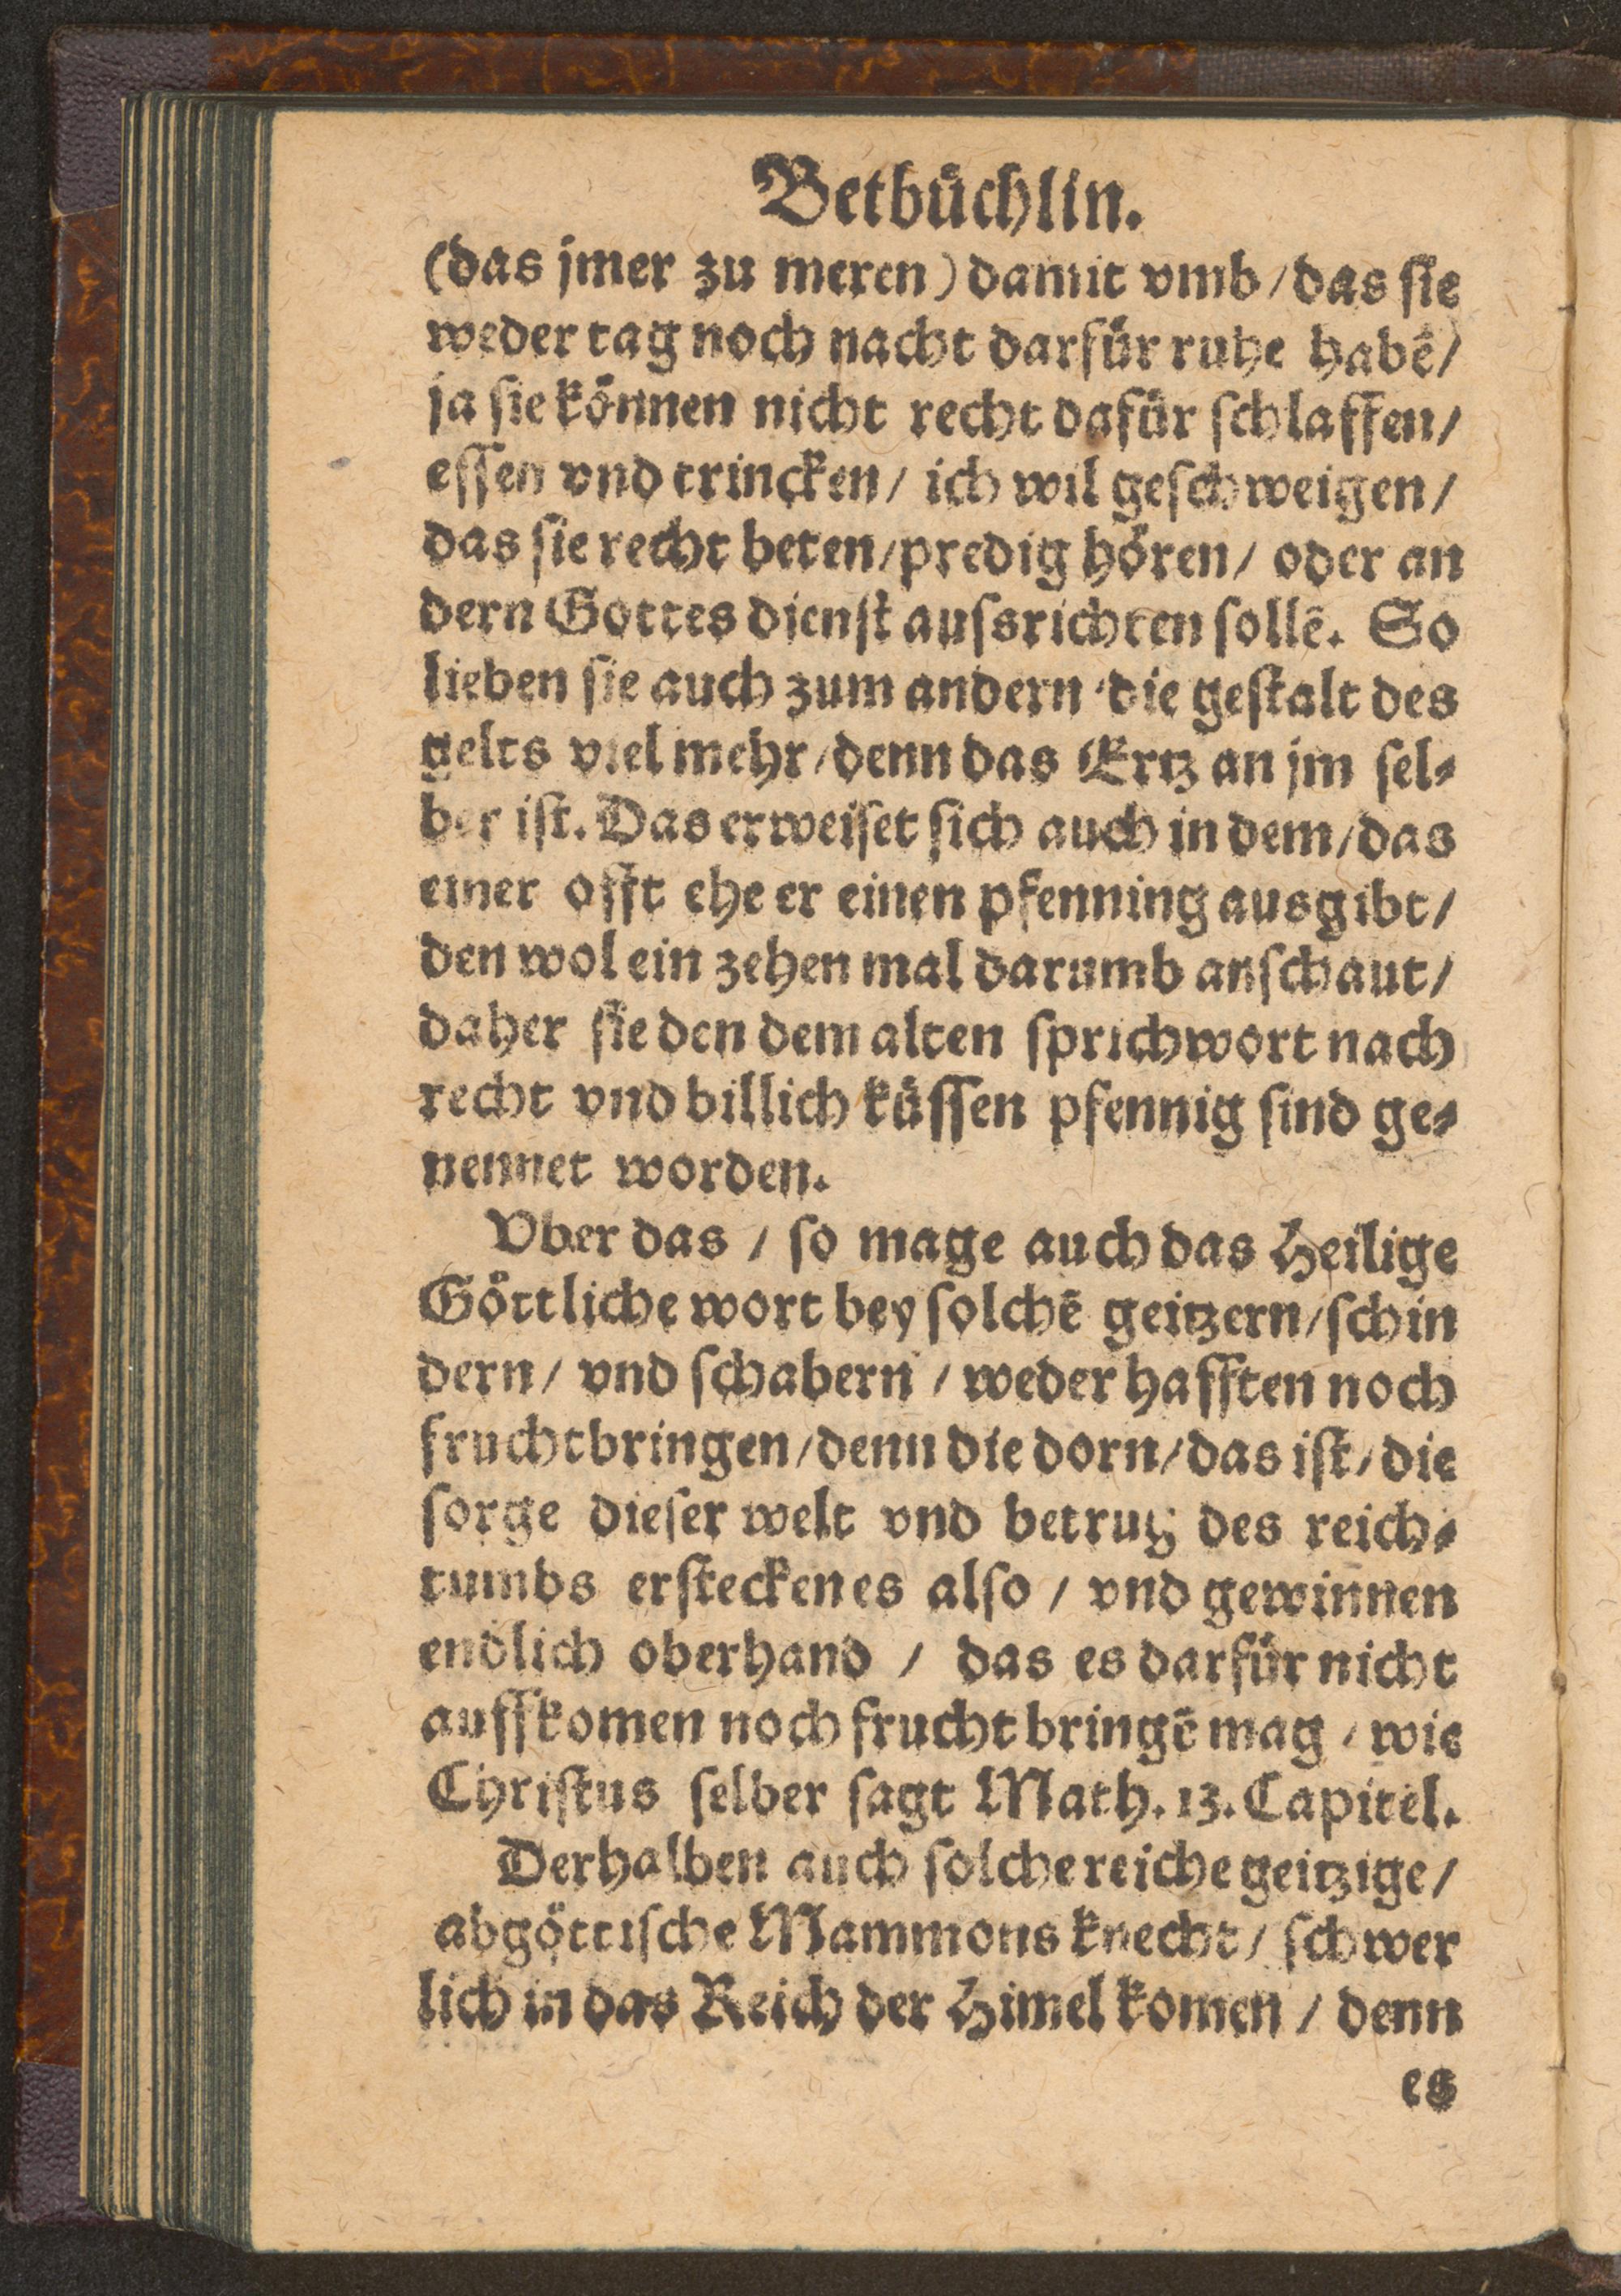 Betbüchlin.
(das jmer zu meren) damit vmb / das sie
weder tag noch nacht darfür ruhe habē /
ja sie können nicht recht dafür schlaffen /
essen vnd trincken / ich wil geschweigen /
das sie recht beten / predig hören / oder an
dern Gottes dienst aussrichten sollē. So
lieben sie auch zum andern die gestalt des
gelts viel mehr / denn das Ertz an jm sel⸗
ber ist. Das erweiset sich auch in dem / das
einer offt ehe er einen pfenning ausgibt /
den wol ein zehen mal darumb anschaut /
daher sie den dem alten sprichwort nach
recht vnd billich küssen pfennig sind ge⸗
nennet worden.
Vber das / so mage auch das Heilige
Göttliche wort bey solchē geitzern / schin
dern / vnd schabern / weder hafften noch
fruchtbringen / denn die dorn / das ist / die
sorge dieser welt vnd betrug des reich⸗
tumbs erstecken es also / vnd gewinnen
endlich oberhand / das es darfür nicht
auffkomen noch frucht bringē mag / wie
Christus selber sagt Math. 13. Capitel.
Derhalben auch solche reiche geitzige /
abgöttische Mammons knecht / schwer
lich in das Reich der Himel komen / denn
es